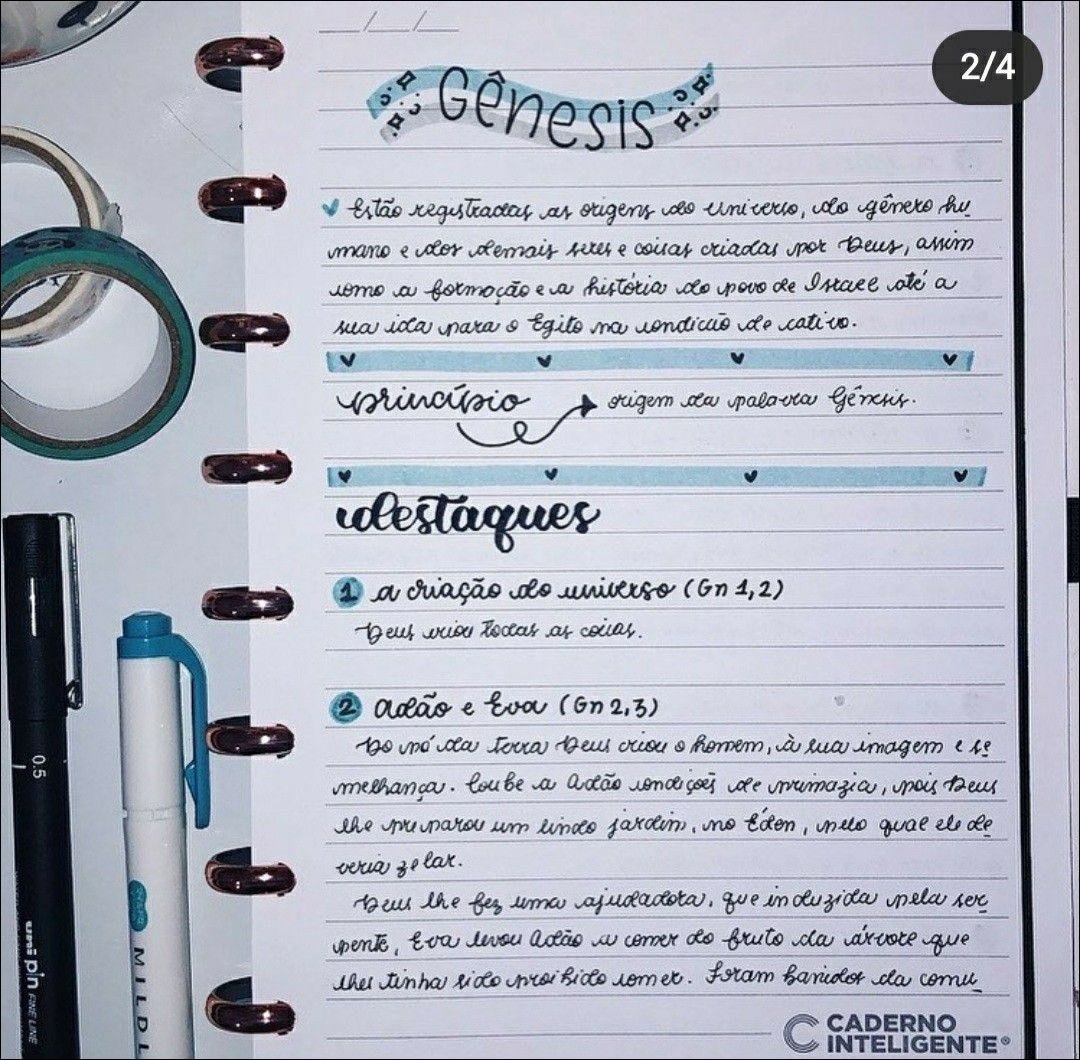 2/4
__/__/__
Gênesis
Estão registradas as origens do universo, do gênero hu
mano e dos demais seres e coisas criadas por Deus, assim
como a formação e a história do povo de Israel até a
sua ida para o Egito na condição de cativo.
princípio → origem da palavra Gênesis.
destaques
1 a criação do universo (Gn 1,2)
Deus criou todas as coisas.
2 Adão e Eva (Gn 2,3)
Do pó da terra Deus criou o homem, à sua imagem e se
melhança. Coube a Adão condições de primazia, pois Deus
lhe preparou um lindo jardim, no Éden, pelo qual ele de
veria zelar.
Deus lhe fez uma ajudadora, que induzida pela ser
pente, Eva levou Adão a comer do fruto da árvore que
lhes tinha sido proibido comer. Foram banidos da comu
CADERNO
INTELIGENTE®
0.5
uni pin FINE LINE
MILDL